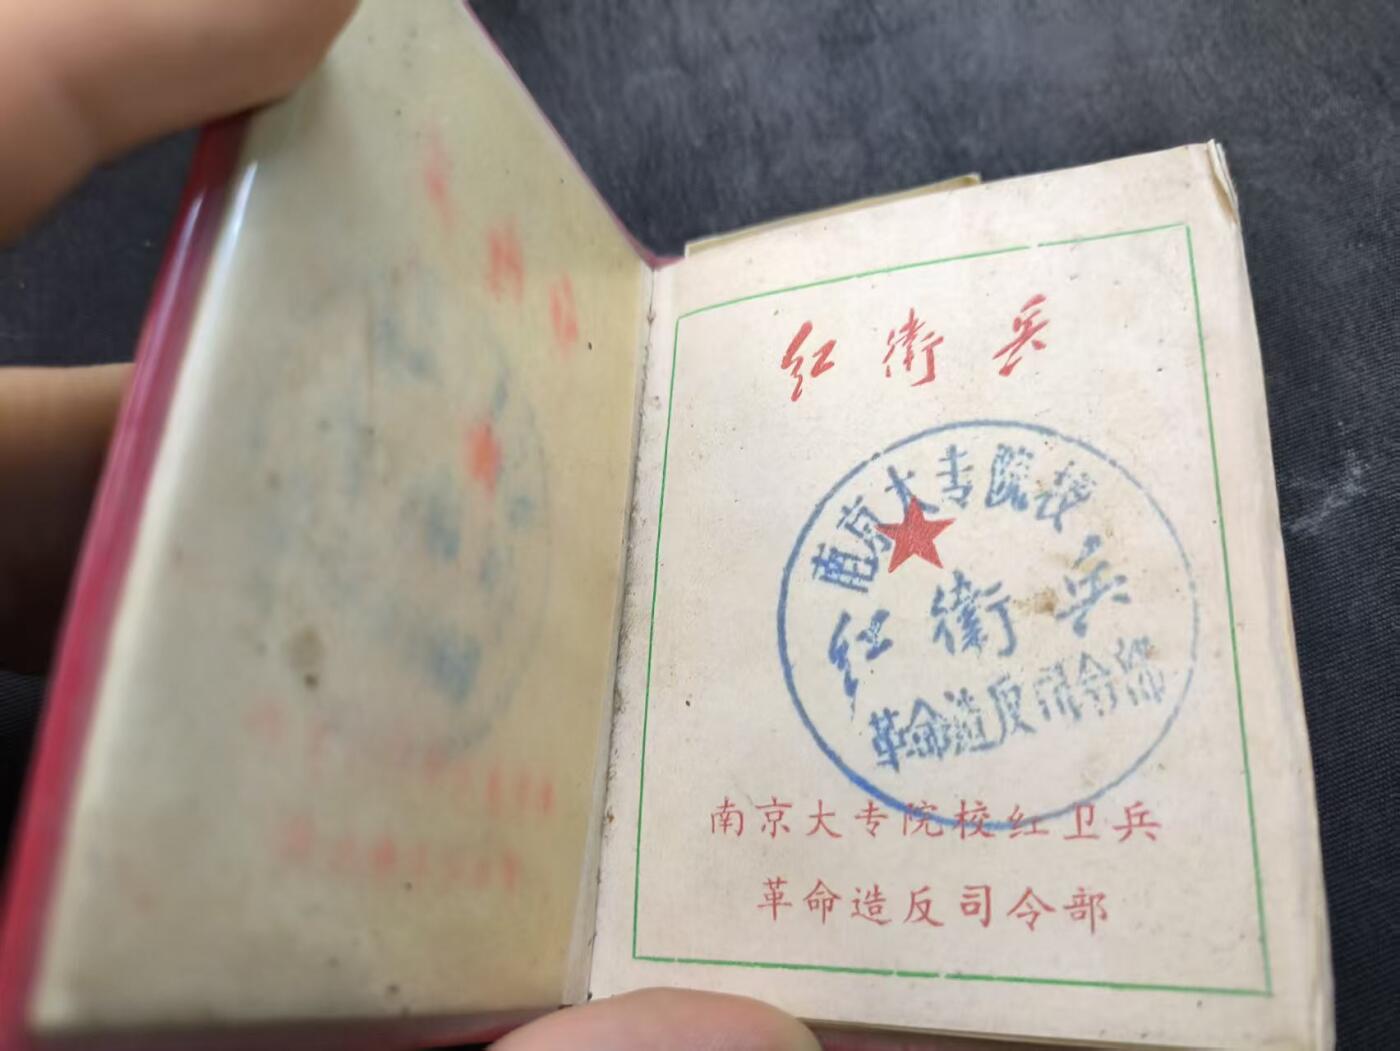 红衛兵
南京大专院校
红衛兵
革命造反司令部
南京大专院校红卫兵
革命造反司令部